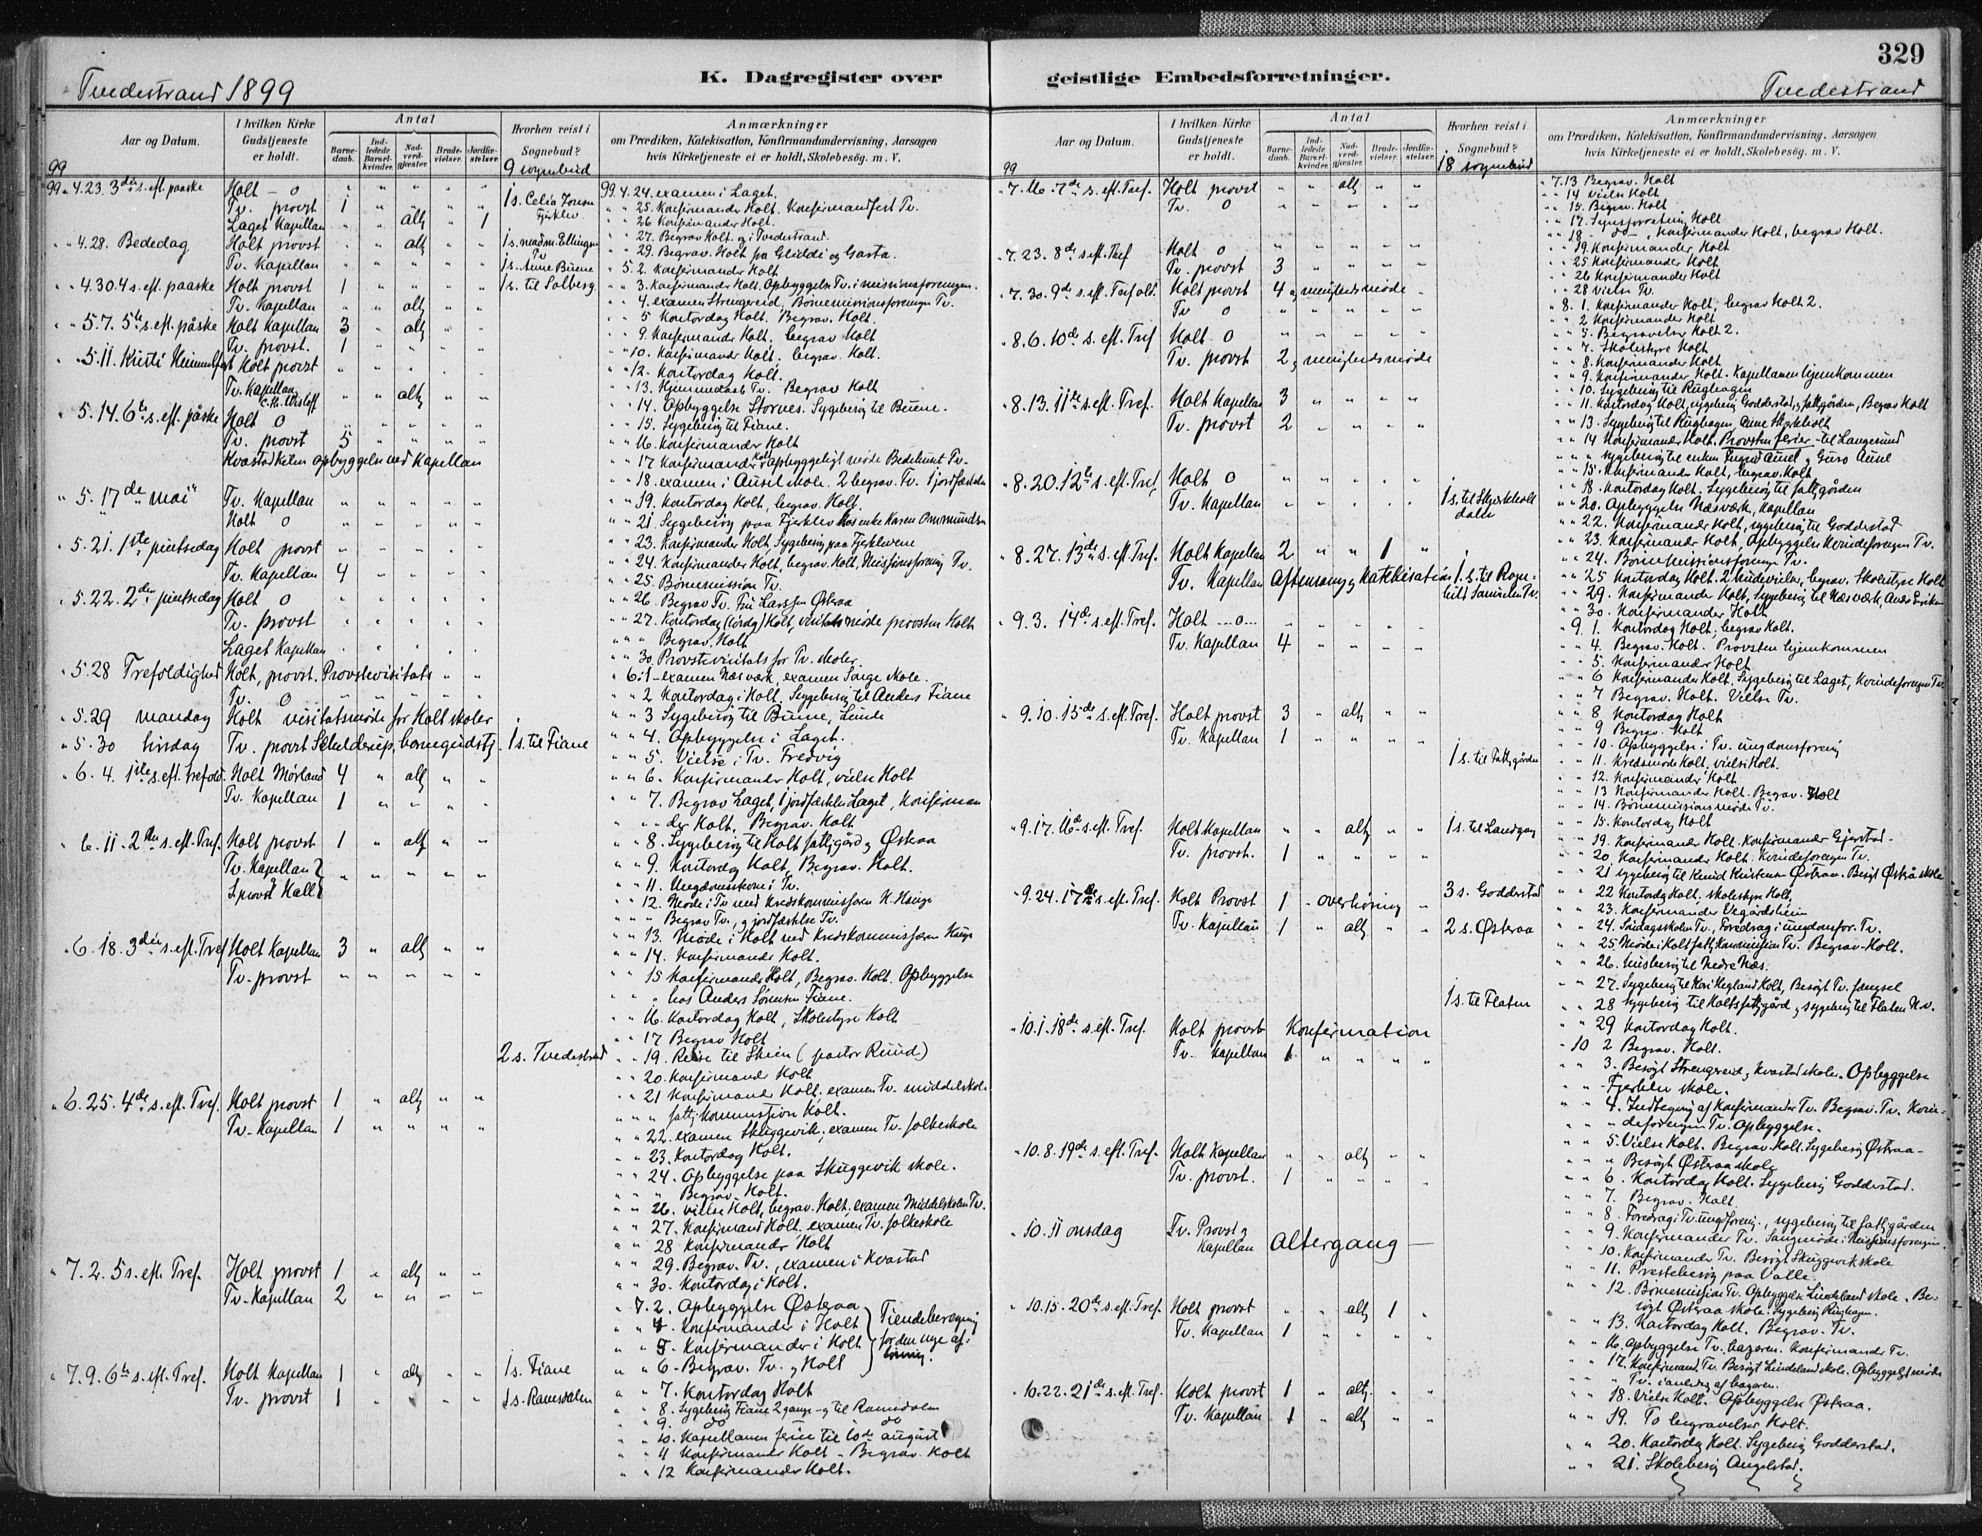 329
K. Dagregister over geistlige Embedsforretninger.
Tvedestrand 1899
Tvedestrand
Aar og Datum.
I hvilken Kirke Gudstjeneste er holdt.
Antal
Barnedaab.
Indledede Barselkvinder.
Nadverdgjester.
Brudevielser.
Jordfæstelser.
Hvorhen reist i Sognebud?
9 sognebud
Anmærkninger
om Prædiken, Katekisation, Konfirmandundervisning, Aarsagen
hvis Kirketjeneste ei er holdt, Skolebesøg. m. V.
99
99 " 4.23. 3die s. eft. påske Holt - o
Tv. provst 1 " " " "
Laget Kapellan " " altg " 1
1 s. Celia Jonsen Fjerklev
" " 4.28. Bededag Holt provst " " altg " "
Tv. Kapellan
1 s. madm. Ellingsen Tv
1 s. Anne Buene
" 4.30. 4 s. eft. paaske Holt provst 1 " " " "
1 s. til Solberg
Tv. Kapellan " " altg " "
" 5.7. 5te s. eft. påske Holt Kapellan 3 " altg " "
Tv. provst. 1 " " " "
" 5.11 Kristi Himmelfart Holt provst
Tv. Kapellan " " altg " "
5.14. 6te s. eft. påske Holt o
Tv. provst 5 " " " "
Kvastad Keten opbyggelse ved Kapellan
" 5. 17de mai Tv. Kapellan
Holt o
" 5.21. 1ste pintsedag Holt provst
Tv. Kapellan 4 " " " "
" 5.22. 2den pintsedag Holt o
Tv. provst
Laget Kapellan
" 5.28 Trefoldighed Holt, provst. Provstevisitats
Tv. o
" 5.29 mandag Holt visitatsmøde for Holt skoler
" 5.30 tirsdag Tv. provst Schelderup, børnegudstj.
1 s. til Fiane
" 6.4. 1ste s. eft. Trefold. Holt Mørland 4 " altg " "
Tv. Kapellan 1 " " " "
" 6.11. 2den s. eft. Tref. Holt provst 1 " altg " "
Tv. Kapellan
S. provst Hall
" 6.18. 3die s. eft. Tref Holt Kapellan 3 " altg " "
Tv. provst
2 s. Tvedestrand
" 6.25. 4de s. eft. Tref. Holt provst 1 " altg " "
Tv. Kapellan 1 " " " "
" 7.2. 5 s. eft. Tref. Holt provst 1 " altg " "
Tv. Kapellan 2 " " " "
" 7.9. 6te s. eft. Tref. Holt Kapellan 1 " altg " "
1 s. Fiane
Tv. provst 1
1 s. Ramsdalen
99 4.24. examen i Laget.
" " 25. Konfirmander Holt. Konfirmandfest Tv.
" " 26 Konfirmander Holt.
" " 27. Begrav Holt. og i Tvedestrand.
" " 29. Begrav. Holt fra Gliddi og Garta.
" 5.2. Konfirmander Holt
" " 3. Konfirmander Holt. Opbyggelse Tv. i missionsforeningen.
" " 4. examen Strengereid, Børnemissionsforeningen Tv.
" " 5 Kontordag Holt. Begrav. Holt.
" " 9. Konfirmander Holt. begrav Holt
" " 10. Konfirmander Holt. begrav. Holt.
" " 12. Kontordag Holt.
" " 13. Hjemmedaab Tv. Begrav Holt
" " 14. Opbyggelse Storvei. Sygebesøg til Buene.
" " 15. Sygebesøg til Fiane.
" " 16. Konfirmander Holt
" " 17 Konfirmander Holt Opbyggeligt møde Bedehuset Tv.
" " 18. examen i Ausel skole. 2 begrav. Tv. 1 jordfæstelse
" " 19. Kontordag Holt, begrav. Holt.
" " 21. Sygebesøg paa Fjerklev hos enke Karen Ommundsen
" " 23. Konfirmander Holt Sygebesøg paa Fjerklevene
" " 24. Konfirmander Holt, begrav. Holt, Missionsforening Tv.
" " 25. Børnemission Tv.
" " 26. Begrav Tv. Fru Larssen Østeraa
" " 27. Kontordag (lørdag) Holt, visitatsmøde provsten Holt
" " " Begrav. Holt
" " 30. Provstevisitats for Tv. skoler.
" 6.1 - examen Næsværk, examen Songe skole.
" " 2 Kontordag i Holt, Sygebesøg til Anders Fiane
" " 3 Sygebesøg til Buene, Lunde
" " 4. Opbyggelse i Laget.
" " 5. Vielse i Tv. Fredvig
" " 6. Konfirmander Holt, vielse Holt
" " 7. Begrav Laget, 1 jordfæstelse Laget, Konfirman
" " der Holt. Begrav. Holt
" " 8. Sygebesøg til Holt fattiggård og Østeraa
" " 9. Kontordag Holt, Begrav. Holt.
" " 11. Ungdomskore i Tv.
" " 12. Møde i Tv med Kredskommissæren H. Hauge
" " " Begrav Tv., og jordfæstelse Tv.
" " 13. Møde i Holt med Kredskommissæren Hauge
" " 14. Konfirmander Holt.
" " 15 Konfirmander Holt, Begrav. Holt. Opbyggelse
" " " hos Anders Sørensen Fiane.
" " 16. Kontordag Holt, Skolestyre Holt
" " 17 Begrav Holt
" " 19. Reise til Skien (pastor Ruud)
" " 20. Konfirmander Holt
" " 21 Konfirmander Holt; examen Tv. middelskole.
" " " fattigkommission Holt.
" " 22. examen Skuggevik; examen Tv. folkeskole
" " 23. Kontordag Holt.
" " 24. Opbyggelse paa Skuggevik skole.
" " " Begrav. Holt.
" " 26. vielse Holt, begrav. Holt, examen Middelskolen Tv.
" " 27. Konfirmand Holt. examen Tv. folkeskole
" " 28 Konfirmander Holt
" " 29. Begrav. Tv., examen i Kvastad
" " 30. Kontordag i Holt.
" 7.2. Opbyggelse Østeraa
" " 4. Konfirmander i Holt
" " 5. Konfirmander i Holt
" " 6. Begrav. Tv. og Holt
Tiendeberegning for den nye afløsning.
" " 7. Kontordag Holt
" " 8. Sygebesøg Fiane 2 gange - og til Ramsdalen
" " 9. do do
" " 10. Kapellanen ferie til 10de august
" " 11 Konfirmander Holt - Begrav Holt
" " 12 Konfirmander Holt.
Aar og Datum.
I hvilken Kirke Gudstjeneste er holdt.
Antal
Barnedaab.
Indledede Barselkvinder.
Nadverdgjester.
Brudevielser.
Jordfæstelser.
Hvorhen reist i Sognebud?
18 sognebud
Anmærkninger
om Prædiken, Katekisation, Konfirmandundervisning, Aarsagen
hvis Kirketjeneste ei er holdt, Skolebesøg. m. V.
99
" 7.16. 7de s. eft. Tref. Holt provst " " altg " "
Tv. o
" 7.23. 8de s. eft. Tref Holt o
Tv. provst 3 " " " "
" 7.30. 9de s. eft. Trefold. Holt provst 4 og menighedsmøde
Tv o
" 8.6. 10de s. eft. Tref Holt o
Tv. provst 2 og menighedsmøde
" 8.13. 11te s. eft. Tref. Holt Kapellan 3 " " " "
Tv. provst 2 " " " "
" 8.20. 12te s. eft. Tref. Holt o
Tv. Kapellan
1 s. til Skjerkholtdalen
" 8.27. 13de s. eft. Tref. Holt Kapellan 2 " " 1 "
Tv. Kapellan Aftensang og Katekisation
" 9.3. 14de s. eft. Tref. Holt --o--
Tv. Kapellan 4
" 9.10. 15de s. eft. Tref. Holt provst 3 " altg " "
Tv. Kapellan 1 " " " "
1 s. til Fattiggården
" 9.17. 16de s. eft. Tref. Holt Kapellan " " altg " "
1 s. til Landgang
Tv. provst. 1 " " " "
" 9.24. 17de s. eft. Tref. Holt Provst 1 - overhøring "
3 s. Godderstad
Tv. Kapellan 1 " altg " "
2 s. Østeraa
1 s. til Flaten
" 10.1. 18de s. eft. Tref. Holt provst Konfirmation
Tv. Kapellan 1 " " " "
" 10.8. 19de s. eft. Tref. Holt Kapellan " " altg " "
Tv. provst. 1 " " " "
" 10.11 onsdag Tv. Provst og Kapellan Altergang
" 10.15. 20de s. eft. Tref. Holt provst " " altg 1 "
Tv. Kapellan 1 " " " "
" 10.22. 21de s. eft. Tref. Holt provst 1 " altg " "
Tv. Kapellan 1 " altg " "
" 7.13 Begrav. Holt
" " 14 Vielse Holt
" " 15. Begrav. Holt
" " 17. Synsforretning Holt
" " 18. " do, Konfirmander Holt, begrav Holt.
" " 19. Konfirmander Holt
" " 25 Konfirmander Holt
" " 26 Konfirmander Holt
" " 28 Vielse Tv
" 8.1. Konfirmander Holt, begrav Holt 2.
" " 2 Konfirmander Holt
" " 5. Begravelser Holt 2.
" " 7. Skolestyre Holt
" " 8. Konfirmander Holt
" " 9. Konfirmander Holt. Kapellanen hjemkommen
" " 10. Sygebesøg til Rughagen
" " 11. Kontordag Holt, sygebesøg Godderstad, og fattiggården, Begrav Holt
" " 13. Sygebesøg til Rughagen, Anne Skjerkholt
" " 14 Konfirmander Holt. Provsten ferier - til Langesund
" " " sygebesøg til enken Ingrid Ausel og Guro Ausel
" " 15. Konfirmander Holt, begrav. Holt
" " 18. Kontordag Holt. Sygebesøg til fattiggården
" " 20. Opbyggelse Næsværk, Kapellan
" " 22. Konfirmander Holt, sygebesøg til Godderstad
" " 23. Konfirmander Holt, Opbyggelse Kvindeforeningen Tv.
" " 24. Børnemissionsforening Tv.
" " 25 Kontordag Holt. 2 hudevielse, begrav. Skolestyre Holt
" " 29. Konfirmander Holt, Sygebesøg til Næsværk,
" " 30. Konfirmander Holt
" 9.1. Kontordag Holt; begrav Holt.
" " 4. Begrav. Holt. Provsten hjemkommen
" " 5. Konfirmander Holt
" " 6 Konfirmander Holt. Sygebesøg til Laget, Kvindeforeningen Tv.
" " 7 Begrav. Holt. Vielse Tv.
" " 8 Kontordag Holt
" " 9 Begrav. Holt
" " 10. Opbyggelse i Tv. ungdomsforening
" " 11. Kredsmøde Holt, vielse Holt.
" " 12. Konfirmander Holt
" " 13 Konfirmander Holt. Begrav. Holt
" " 14. Børnemissions møde Tv.
" " 15. Kontordag Holt
" " 19. Konfirmander Holt. Konfirmander Gjerstad.
" " 20. Konfirmander Holt. Kvindeforeningen Tv.
" " 21 sygebesøg til Knud Kristensen Østeraa. Besøgt Østerå skole
" " 22 Kontordag Holt, skolestyre Holt,
" " 23. Konfirmander Vegårdsheim
" " 24. Søndagsskolen Tv., Foredrag i ungdomsfor. Tv.
" " 25 Møde i Holt fattigkommission Tv. Begrav. Holt.
" " 26. Husbesøg til Nedre Næs.
" " 27. Sygebesøg til Kari Hegland Holt, Besøgt Tv. fængsel
" " 28 Sygebesøg til Holts fattiggård og sygebesøg til Flaten
" " 29 Kontordag Holt.
" 10 2 Begrav. Holt.
" " 3. Besøgt Strengereid og Kvastad skoler. Opbyggelse
" " - Fjerklev skole.
" " 4. Indtegning af Konfirmander Tv. Begrav. Tv. Kvin-
" " " deforeningen Tv. Opbyggelse.
" " 5. Vielse Holt. Begrav. Holt. Sygebesøg Østeraa -
" " " Besøgt Østeraa skole
" " 6. Kontordag Holt. Sygebesøg Godderstad.
" " 7. Begrav. Holt
" " 8. Foredrag i Tv. ungd. forening., sygebesøg til fattiggården
" " 9. Konfirmander Tv. Sangmøde i Missionsforeningen.
" " 10. Konfirmander Tv. Besøgt Skuggevik skole
" " 11. Prestebesøg paa Valle.
" " 12. Børnemission Tv. Opbyggelse Lindeland skole. Be-
søgt Østeraa skole. Sygebesøg Rughagen.
" " 13. Kontordag Holt. Begrav. Tv.
" " 16. Opbyggelse Tv. bazaren. Konfirmander Tv.
" " 17. Konfirmand. Tv. Besøgt Lindeland skole. Opbyggeligt møde
" " " Tv. i anledning af bazaren.
" " 18. Vielse Holt. Opbyggelse Østeraa.
" " 19. To begravelser Holt.
" " 20. Kontordag Holt. Sygebesøg Godderstad.
" " 21. Skolebesøg Angelstad.